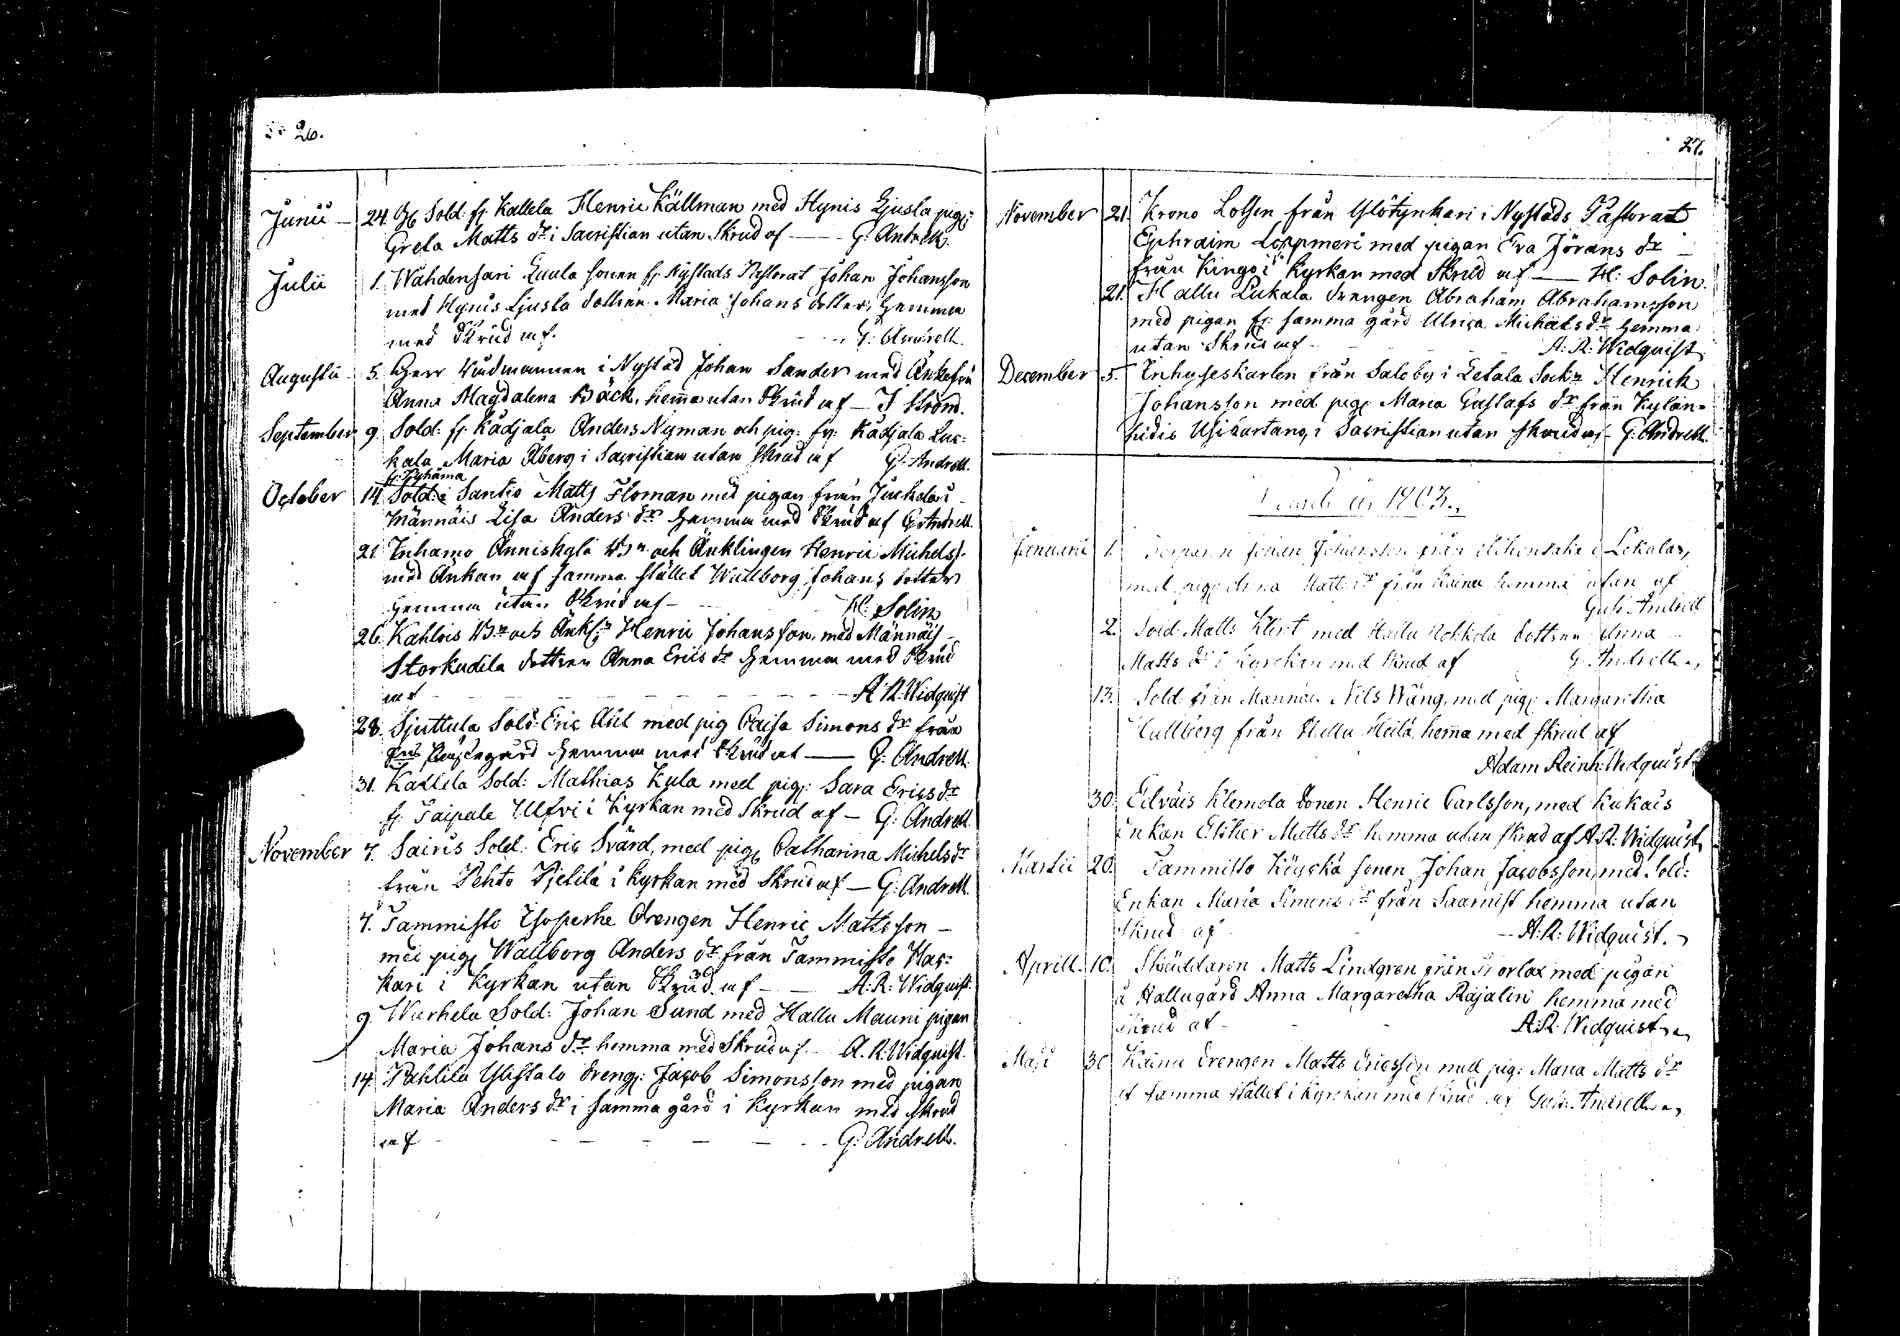 26.
Junii 24. Sold: fr Kallela Henric Källman med Hynis Ljusla pig:
Greta Matts dr i Sacristian utan Skrud af G: Andrell.
Julii 1. Wähdensari Laula sonen fr Nystads Pastorat Johan Johansson
med Hynis Ljusla dottren Maria Johans dotter, hemma
med Skrud af. G: Andrell.
Augusti 5. Herr Rådmannen i Nystad Johan Sander med Änkefru
Anna Magdalena Bäck, hema utan Skrud af J Ström.
September 9. Sold: fr Kadjala Anders Nyman och pig: fr: Kadjala Luc-
kala Maria Åberg i Sacristian utan Skrud af G: Andrell.
fr: Pyhäma
October 14. Sold: i Santio Matts Floman med pigan från
Männäis Lisa Anders dr hemma med Skrud af G: Andrell.
21. Inhamo Änniskylä Bn och Änklingen Henric Michels:
med Änkan af samma stället Wallborg Johans dotter
hemma utan Skrud af H: Solin
26. Kahlois Bn och Änkl: Henric Johansson, med Männäis
Storkudila dottren Anna Erics dr hemma med Skrud
af A: R: Widquist
28. Sjuttula Sold: Eric Ahl med pig Caisa Simons dr från
gård hemma med Skrud af G: Andrell.
31. Kallela Sold: Mathias Kula med pig: Sara Erics dr
fr. Taipale Ulfvi i Kyrkan med Skrud af G: Andrell
November 7. Sairis Sold: Eric Svärd, med pig: Catharina Michels dr
från Pehto Pjelilä i Kyrkan med Skrud af G: Andrell.
7. Tammisto Isoperhe Drengen Henric Mattsson
med pig: Wallborg Anders dr från Tammisto Has-
kari i Kyrkan utan Skrud af A: R: Widquist.
9. Warhela Sold: Johan Sund med Hallu Mauni pigan
Maria Johans dr hemma med Skrud af A. R: Widquist.
14. Pahlila Ylistalo Dreng: Jacob Simonsson med pigan
Maria Anders dr i samma gård i Kyrkan med Skrud
af G: Andrell.
27.
November 21. Krono Lotsen från i Nystads Pastorat
Ephraim Loppmeri med pigan Eva Jörans dr
från Kingo i Kyrkan med Skrud af H: Solin.
21. Hallu Lukala Drengen Abraham Abrahamsson
med pigan fr: samma gård Ulrica Michels dr hemma
utan Skrud af A: R: Widquist.
December 5. Inhyseskarlen från Saloby i Letala Sockn Henrick
Johansson med pig: Maria Gustafs dr från Kylän-
pidis i Sacristian utan skrud af G: Andrell.
år 1803.
Januarii 1. sonen Johansson från i Lokalax,
med pig: Anna Matts dr från Kainu hemma utan af
Gust: Andrell
2. Sold: Matts Klint med Hallu dottren Anna
Matts dr i Kyrckan med Skrud af G: Andrell
13. Sold från Männäis Nils Wäng, med pig: Margaretha
Hullberg från Hallu Heilä, hema med skrud af
Adam Reinh: Widquist
30. Edväis Klemola Sonen Henric Carlsson, med Kukais
Enkan Esther Matts dr hemma utan skrud af A. R: Widquist
Martii 20. Tammisto Köyckä sonen Johan Jacobsson med Sold:
Enkan Maria Simons dr från Saarnist hemma utan
skrud af A: R: Widquist.
Aprill 10. Skräddaren Matts Lindgren från Norlax med pigan
å Hallu gård Anna Margaretha Rajalin hemma med
skrud af A: R: Widquist
Maji 30 Kainu Drengen Matts Ericsson med pig: Maria Matts dr
af samma stället i Kyrckan med skrud af Gust: Andrell